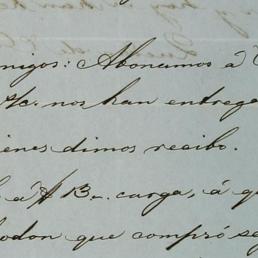 nigos: Abonamos á
Yc. nos han entrega
ienes dimos recibo.
á A B. carga, á q
odon que compró se